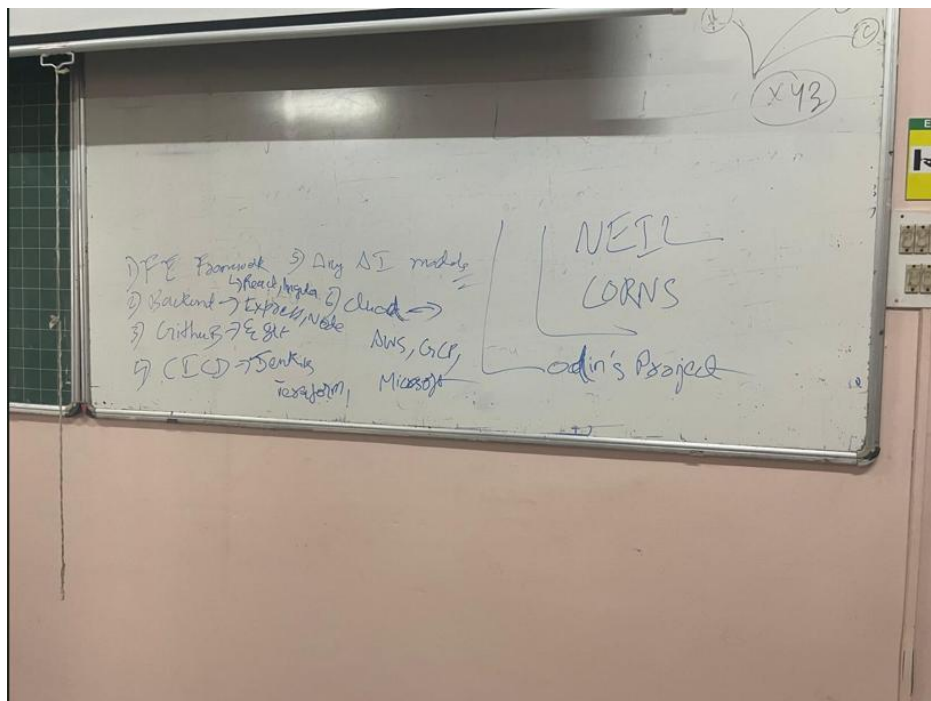 XYZ
C
1) FE Framework
↳ React, Angular
2) Backend → Express, Node
3) GitHub → & git
4) CICD → Jenkins
Terraform,
5) Any AI models
6) Cloud →
AWS, GCP,
Microsoft
NEIL
CORNS
odin's Project